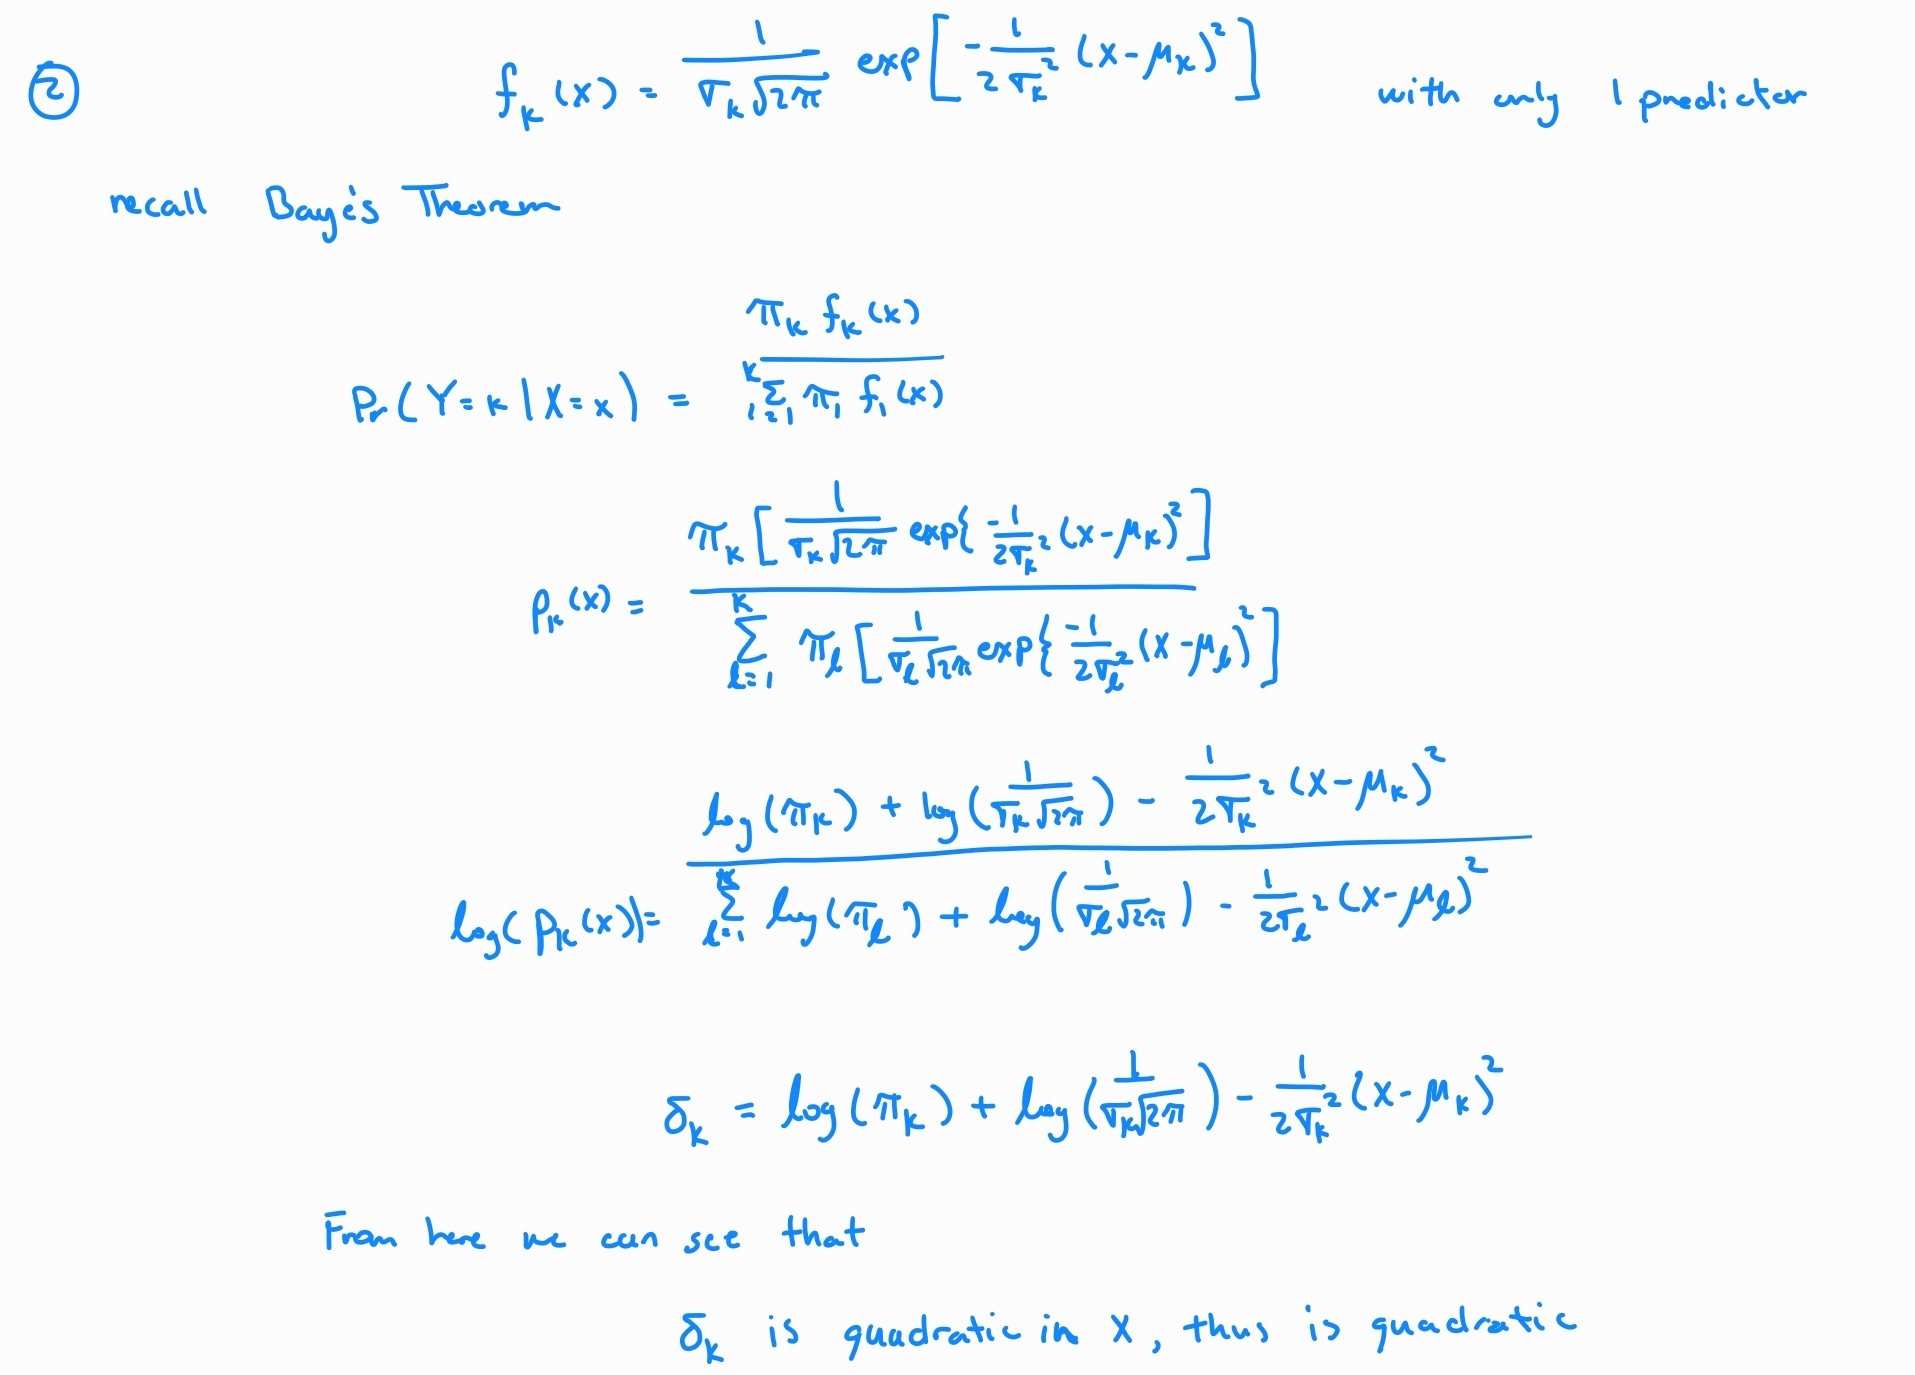 ② f_k (x) = 1 / (σ_k √2π) exp[ -1/(2σ_k²) (x-μ_k)² ] with only 1 predictor
recall Baye's Theorem
Pr(Y=k | X=x) = π_k f_k (x) / Σ_{l=1}^{K} π_l f_l (x)
p_k (x) = π_k [ 1/(σ_k √2π) exp{ -1/(2σ_k²) (x-μ_k)² ] / Σ_{l=1}^{K} π_l [ 1/(σ_l √2π) exp{ -1/(2σ_l²) (x-μ_l)² ]
log( p_k (x)) = log (π_k) + log ( 1/(σ_k √2π) ) - 1/(2σ_k²) (x-μ_k)² / Σ_{l=1}^{K} log (π_l) + log ( 1/(σ_l √2π) ) - 1/(2σ_l²) (x-μ_l)²
δ_k = log (π_k) + log ( 1/(σ_k √2π) ) - 1/(2σ_k²) (x-μ_k)²
From here we can see that
δ_k is quadratic in X, thus is quadratic